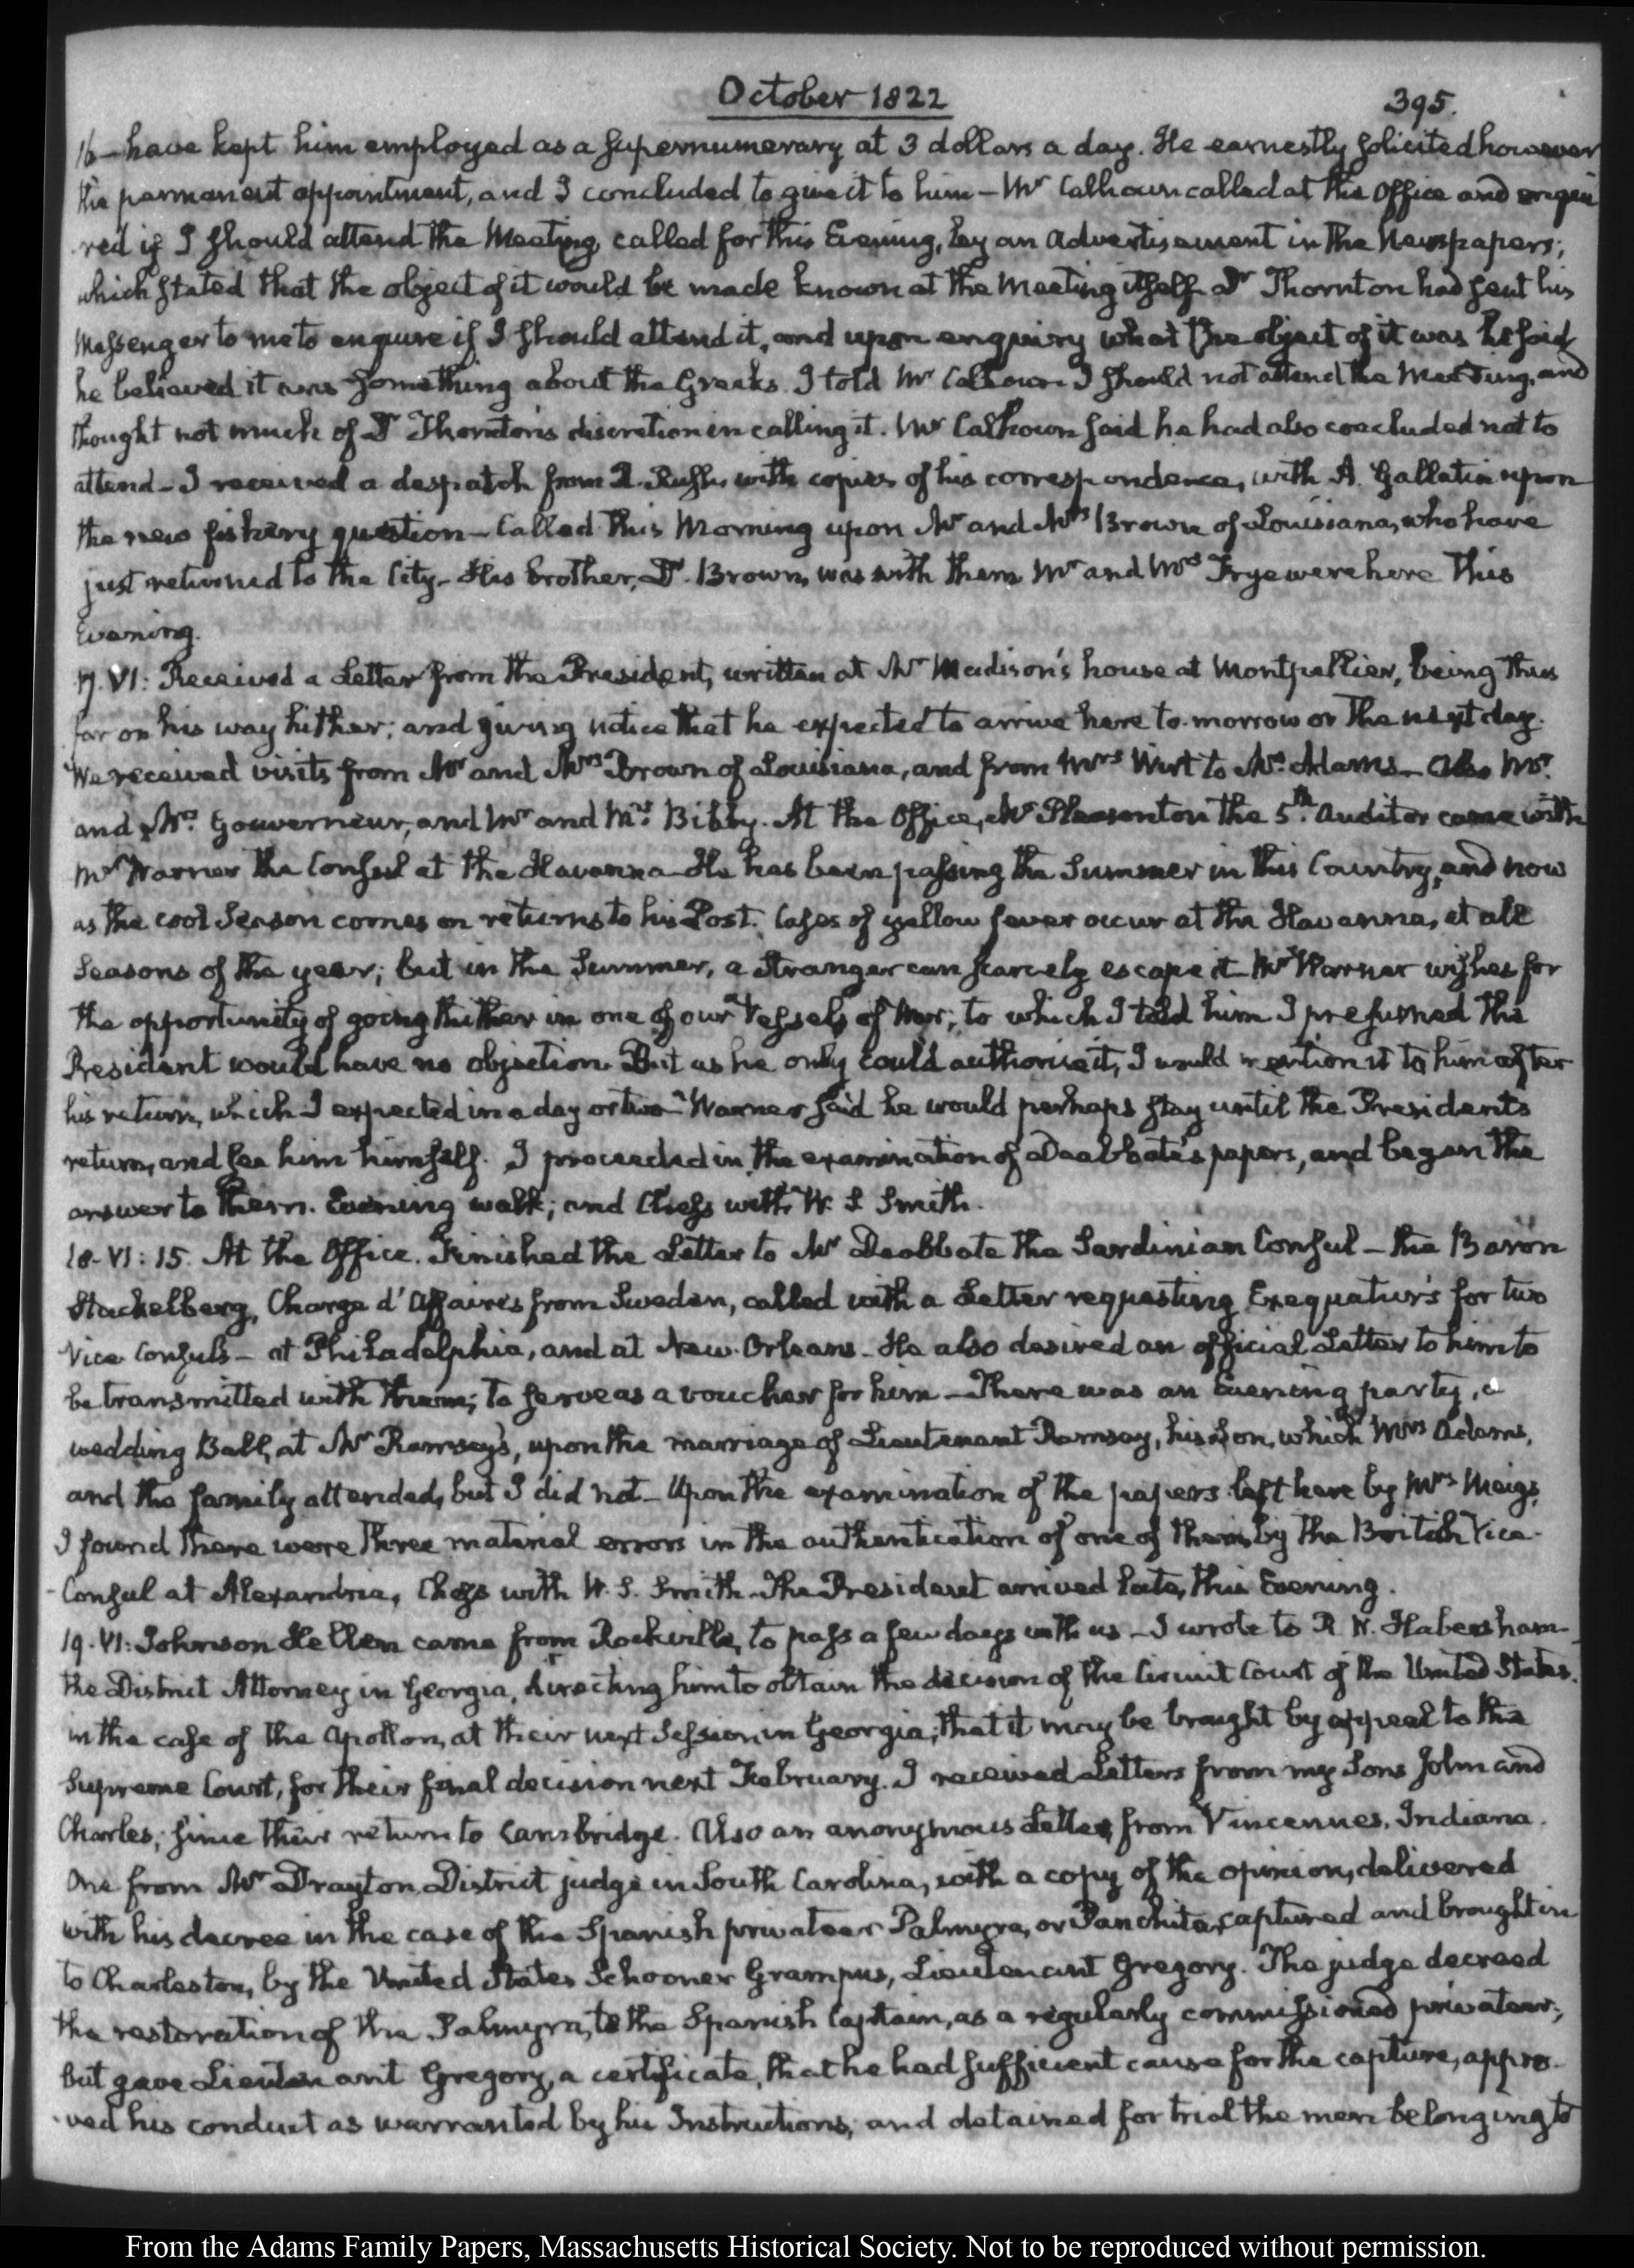 October 1822
395.
16 – have kept him employed as a supernumerary at 3 dollars a day. He earnestly solicited however
the permanent appointment, and I concluded to give it to him – Mr Calhoun called at the Office and enqui
red if I should attend the Meeting, called for this Evening, by an advertisement in the Newspapers;
which stated that the object of it would be made known at the Meeting itself. Dr Thornton had sent his
Messenger to me to enquire if I should attend it, and upon enquiry what the object of it was he said
he believed it was something about the Greeks. I told Mr Calhoun I should not attend the Meeting, and
thought not much of Dr Thornton's discretion in calling it. Mr Calhoun said he had also concluded not to
attend – I received a despatch from R. Rush, with copies of his correspondence, with A. Gallatin upon
the new fishery question – Called this Morning upon Mr and Mrs Brown of Louisiana, who have
just returned to the City – His brother, Dr. Brown, was with them. Mr and Mrs Frye were here this
Evening.
17. VI: Received a Letter from the President, written at Mr Madison's house at Montpellier, being thus
far on his way hither; and giving notice that he expected to arrive here to-morrow or the next day.
We received visits from Mr and Mrs Brown of Louisiana, and from Mrs Wirt to Mrs Adams – Also Mr.
and Mrs Gouverneur, and Mr and Mrs Bibby. At the Office, Mr Pleasonton the 5th. Auditor came with
Mr Warner the Consul at the Havanna – He has been passing the Summer in this Country, and now
as the cool Season comes on returns to his Post. Cases of yellow fever occur at the Havanna, at all
Seasons of the year; but in the Summer, a Stranger can scarcely escape it – Mr Warner wishes for
the opportunity of going thither in one of our Vessels of War; to which I told him I presumed the
President would have no objection. But as he only could authorise it, I would mention it to him after
his return, which I expected in a day or two – Warner said he would perhaps stay until the Presidents
return, and see him himself. I proceeded in the examination of Deabbate's papers, and began the
answer to them. Evening walk; and Chess with W. S. Smith.
18 – VI: 15. At the Office. Finished the Letter to Mr Deabbate the Sardinian Consul – the Baron
Stackelberg, Chargé d'Affaires from Sweden, called with a Letter requesting Exequatur's for two
Vice Consuls – at Philadelphia, and at New-Orleans – He also desired an official Letter to him to
be transmitted with them; to serve as a voucher for him – There was an Evening party, a
wedding Ball, at Mr Ramsay's, upon the marriage of Lieutenant Ramsay, his Son, which Mrs Adams,
and the family attended, but I did not – Upon the examination of the papers left here by Mrs Meigs,
I found there were three material errors in the authentication of one of them, by the British Vice-
Consul at Alexandria. Chess with W. S. Smith – The President arrived late, this Evening.
19. VI: Johnson Hellen came from Rockville, to pass a few days with us – I wrote to R. W. Habersham –
the District Attorney in Georgia, directing him to obtain the decision of the Circuit Court of the United States.
in the case of the Apollon, at their next Session in Georgia; that it may be brought by appeal to the
Supreme Court, for their final decision next February. I received Letters from my Sons John and
Charles, since their return to Cambridge. Also an anonymous Letter from Vincennes, Indiana.
One from Mr Drayton District judge in South Carolina, with a copy of the opinion, delivered
with his decree in the case of the Spanish privateer Palmyra, or Panchita, captured and brought in
to Charleston, by the United States Schooner Grampus, Lieutenant Gregory. The judge decreed
the restoration of the Palmyra, to the Spanish Captain, as a regularly commissioned privateer;
but gave Lieutenant Gregory, a certificate, that he had sufficient cause for the capture, appro-
ved his conduct as warranted by his Instructions; and detained for trial the men belonging to
From the Adams Family Papers, Massachusetts Historical Society. Not to be reproduced without permission.